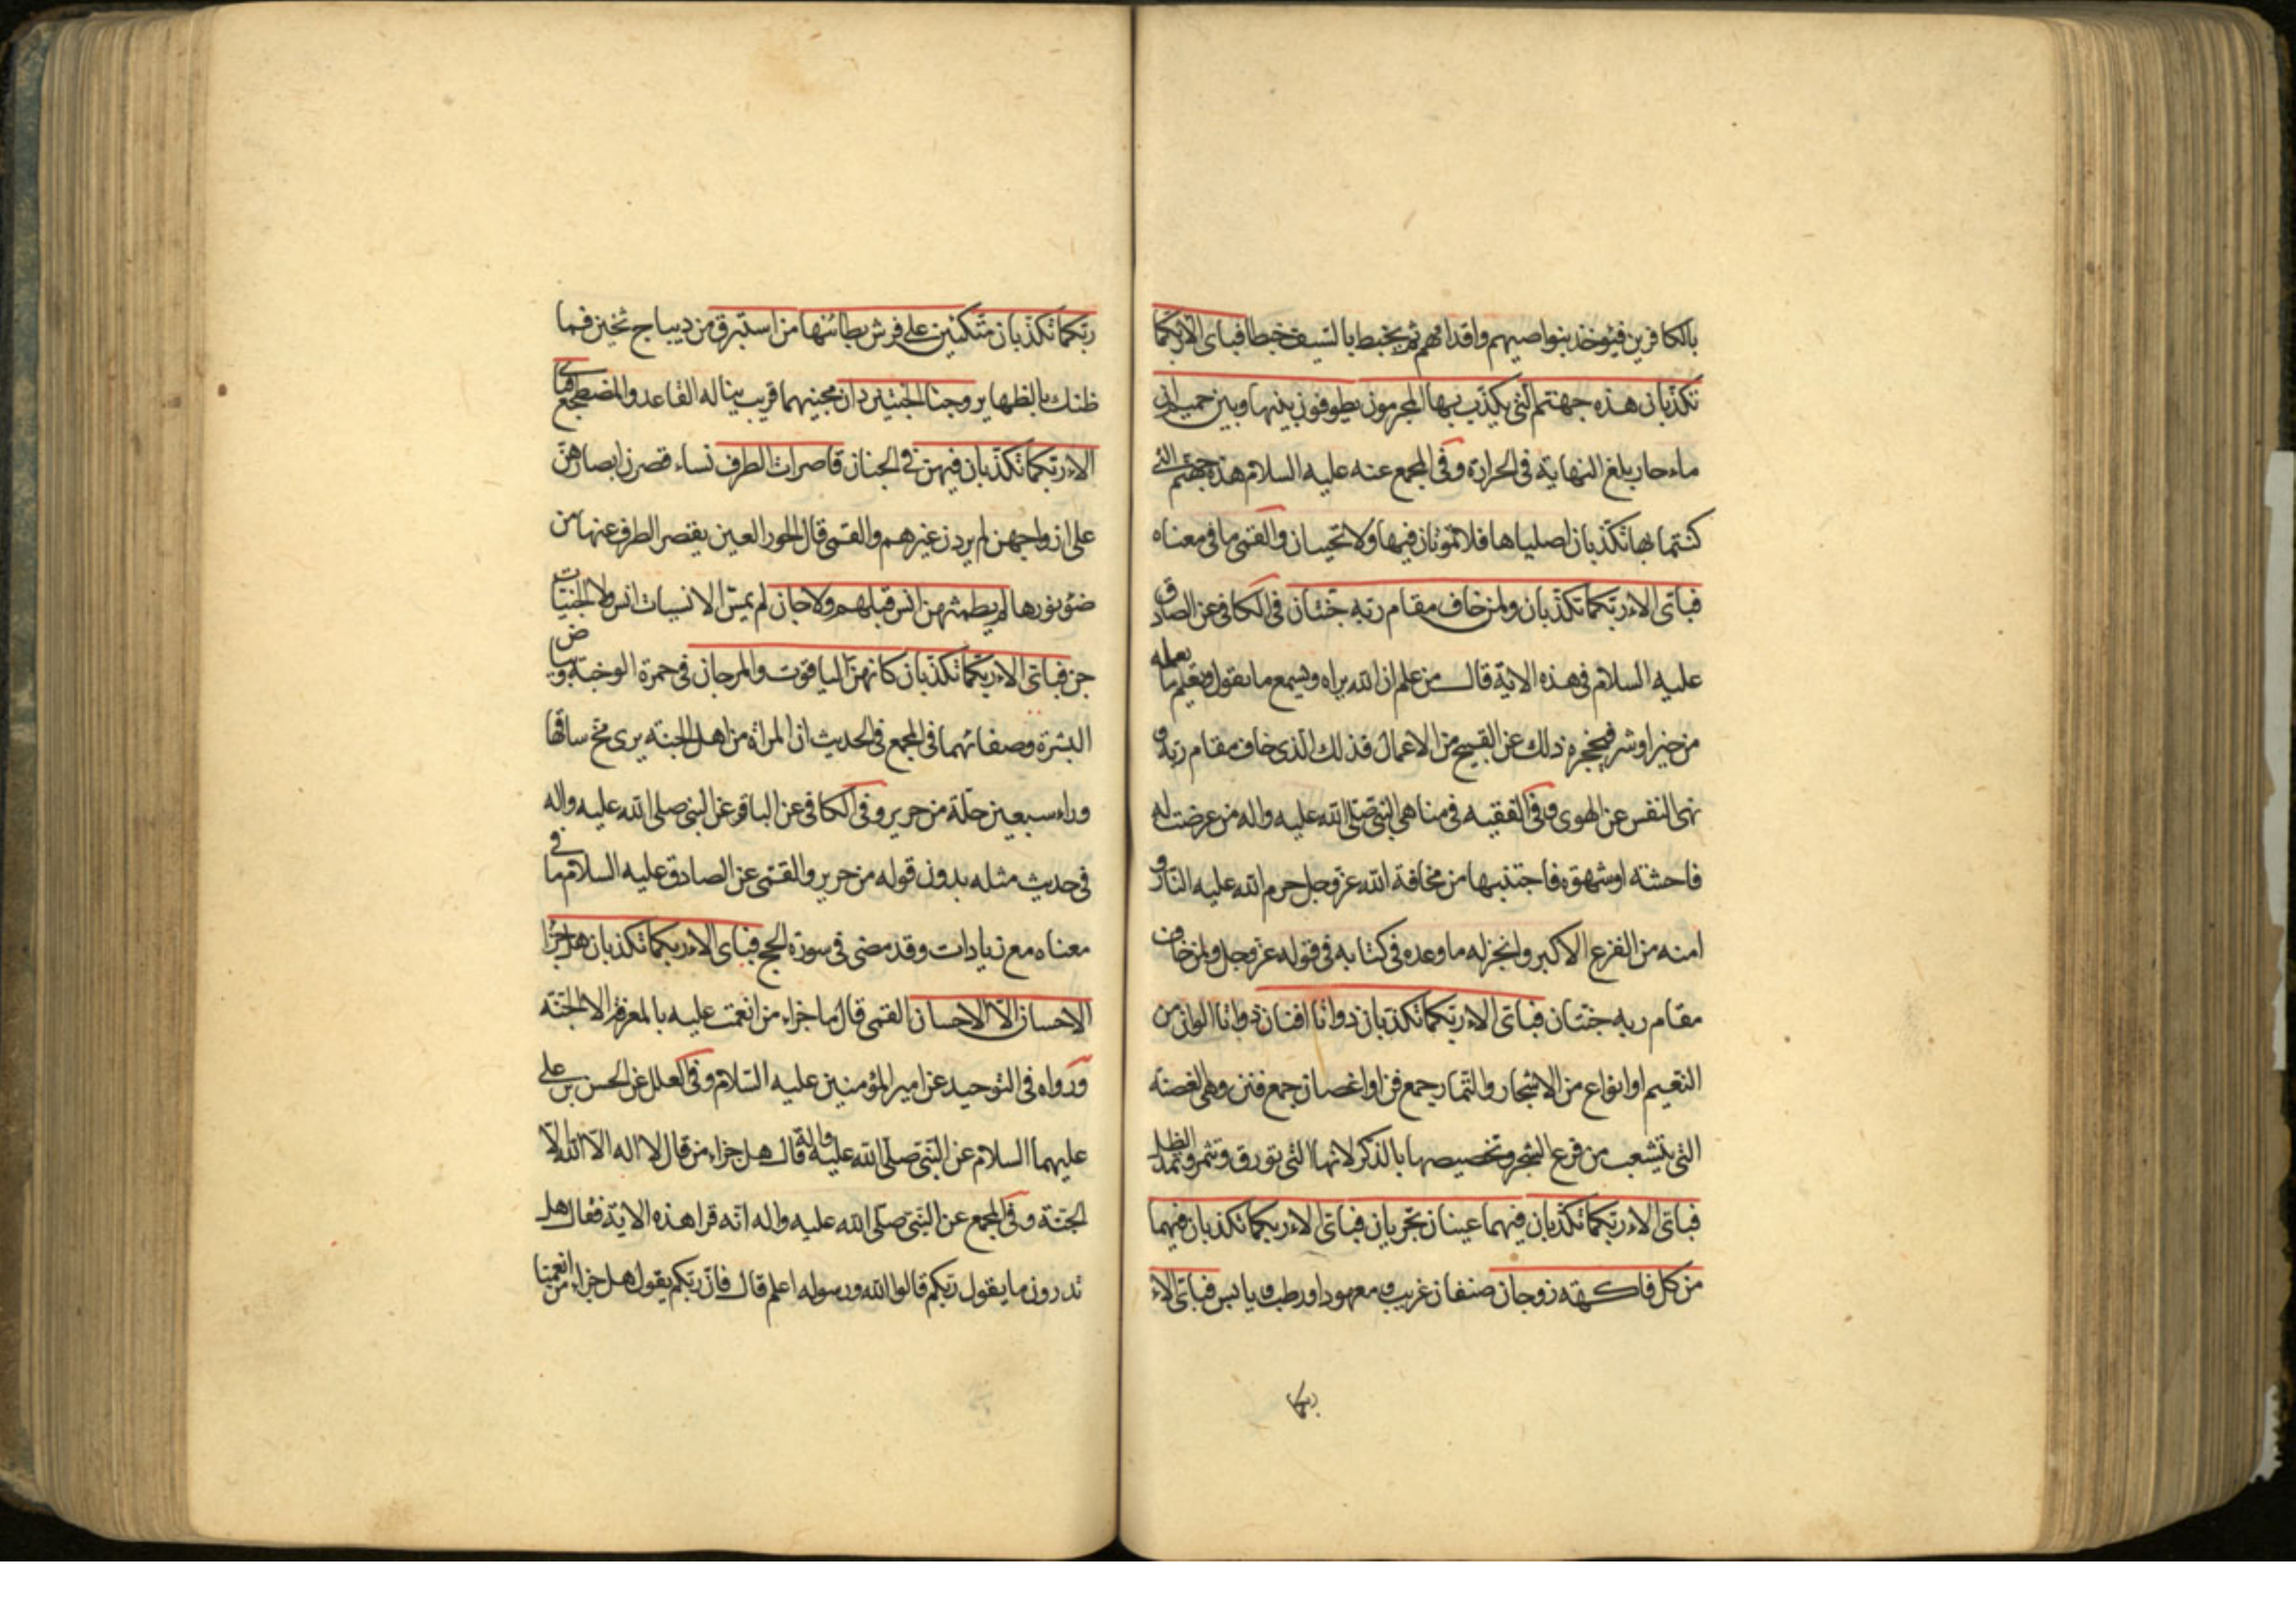 بالكافرين فيؤخذ بنواصيهم واقدامهم ثم يخبط بالسيف خبطا فباى الاء ربكما
تكذبان هذه جهنم التي يكذب بها المجرمون يطوفون بينها وبين حميم ان
ماء حار بلغ النهاية في الحرارة وفي المجمع عنه عليه السلام هذه جهنم التي
كنتما بها تكذبان اصلياها فلا تموتان فيها ولا تحييان والقمي ما في معناه
فباى الاء ربكما تكذبان ولمن خاف مقام ربه جنتان في الكافي عن الصادق
عليه السلام في هذه الاية قال من علم ان الله يراه ويسمع ما يقول ويعلم ما يعمله
من خير او شر فيحجزه ذلك عن القبيح من الاعمال فذلك الذي خاف مقام ربه و
نهى النفس عن الهوى وفي الفقيه في مناهي النبي صلى الله عليه واله من عرضت له
فاحشة او شهوة فاجتنبها من مخافة الله عز وجل حرم الله عليه النار و
امنه من الفزع الاكبر وانجز له ما وعده في كتابه في قوله عز وجل ولمن خاف
مقام ربه جنتان فباى الاء ربكما تكذبان ذواتا افنان ذواتا الوان من
النعيم او انواع من الاشجار والثمار جمع فن او اغصان جمع فنن وهي الغصنة
التي تتشعب من فرع الشجر وتخصيصها بالذكر لانها التي تورق وتثمر وتمد الظل
فباى الاء ربكما تكذبان فيهما عينان تجريان فباى الاء ربكما تكذبان فيهما
من كل فاكهة زوجان صنفان غريب ومعهود او رطب ويابس فباى الاء
ربكما
ربكما تكذبان متكئين على فرش بطائنها من استبرق من ديباج ثخين فما
ظنك بالظهاير وجنا الجنتين دان مجنيهما قريب يناله القاعد والمضطجع فباى
الاء ربكما تكذبان فيهن في الجنان قاصرات الطرف نساء قصرن ابصارهن
على ازواجهن لم يردن غيرهم والقمي قال الحور العين يقصر الطرف عنها من
ضوء نورها لم يطمثهن انس قبلهم ولا جان لم يمس الانسيات انس ولا الجنيات
جن فباى الاء ربكما تكذبان كانهن الياقوت والمرجان في حمرة الوجنة وبياض
البشرة وصفائهما في المجمع في الحديث ان المراة من اهل الجنة يرى مخ ساقها
وراء سبعين حلة من حرير وفي الكافي عن الباقر عن النبي صلى الله عليه واله
في حديث مثله بدون قوله من حرير والقمي عن الصادق عليه السلام ما في
معناه مع زيادات وقد مضى في سورة الحج فباى الاء ربكما تكذبان هل جزاء
الاحسان الا الاحسان القمي قال ما جزاء من انعمت عليه بالمعرفة الا الجنة
ورواه في التوحيد عن امير المؤمنين عليه السلام وفي العلل عن الحسن بن علي
عليهما السلام عن النبي صلى الله عليه واله قال هل جزاء من قال لا اله الا الله الا
الجنة وفي المجمع عن النبي صلى الله عليه واله انه قرا هذه الاية فقال هل
تدرون ما يقول ربكم قالوا الله ورسوله اعلم قال فان ربكم يقول هل جزاء من انعمنا